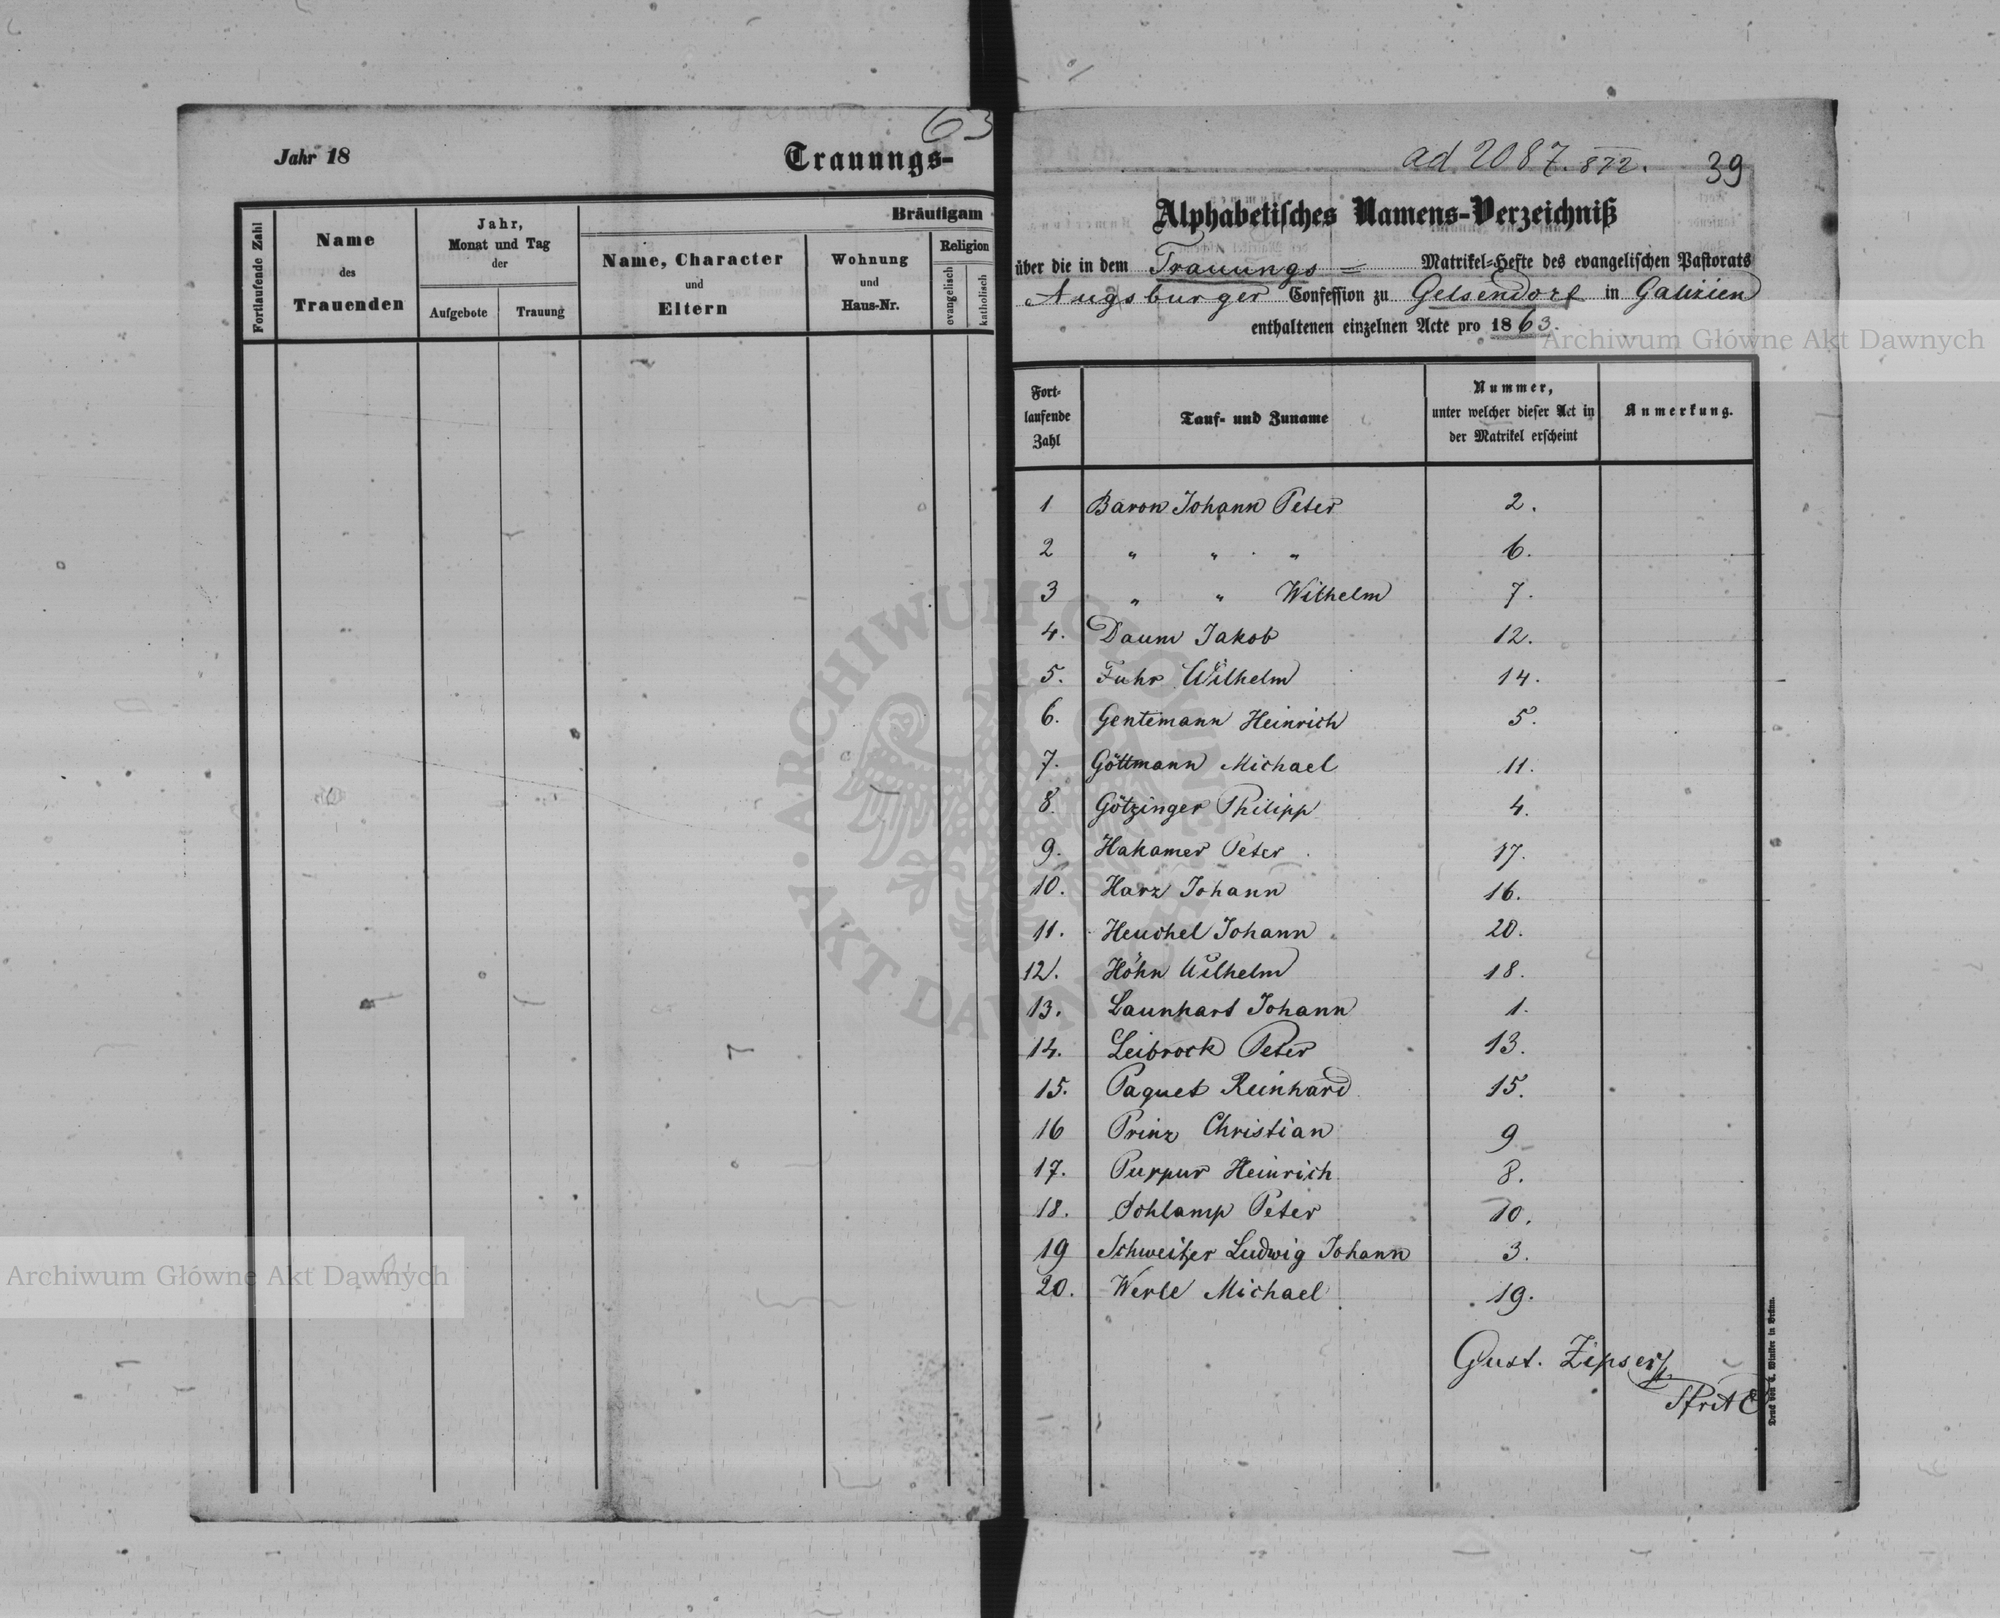 63
Jahr 18
Trauungs-
Fortlaufende Zahl
Name
des
Trauenden
Jahr,
Monat und Tag
der
Aufgebote
Trauung
Bräutigam
Name, Character
und
Eltern
Wohnung
und
Haus-Nr.
Religion
evangelisch
katholisch
ad 2087. 872. 39
Alphabetisches Namens-Verzeichniß
über die in dem Trauungs= Matrikel-Hefte des evangelischen Pastorats
Augsburger Confession zu Gelsendorf in Galizien
enthaltenen einzelnen Acte pro 1863.
Fort-
laufende
Zahl
Tauf- und Zuname
Nummer,
unter welcher dieser Act in
der Matrikel erscheint
Anmerkung.
1 Baron Johann Peter 2.
2 " " " 6.
3 " " Wilhelm 7.
4. Daum Jakob 12.
5. Fuhr Wilhelm 14.
6. Gentemann Heinrich 5.
7. Göttmann Michael 11.
8. Götzinger Philipp 4.
9. Hakamer Peter 17.
10. Harz Johann 16.
11. Heuchel Johann 20.
12. Höhn Wilhelm 18.
13. Launhart Johann 1.
14. Leibrock Peter 13.
15. Paquet Reinhard 15.
16 Prinz Christian 9
17. Purpur Heinrich 8.
18. Schlamp Peter 10.
19 Schweitzer Ludwig Johann 3.
20. Werle Michael 19.
Gust. Zipser
Druck von C. Winiker in Brünn.
Archiwum Główne Akt Dawnych
Archiwum Główne Akt Dawnych
ARCHIWUM GŁÓWNE AKT DAWNYCH